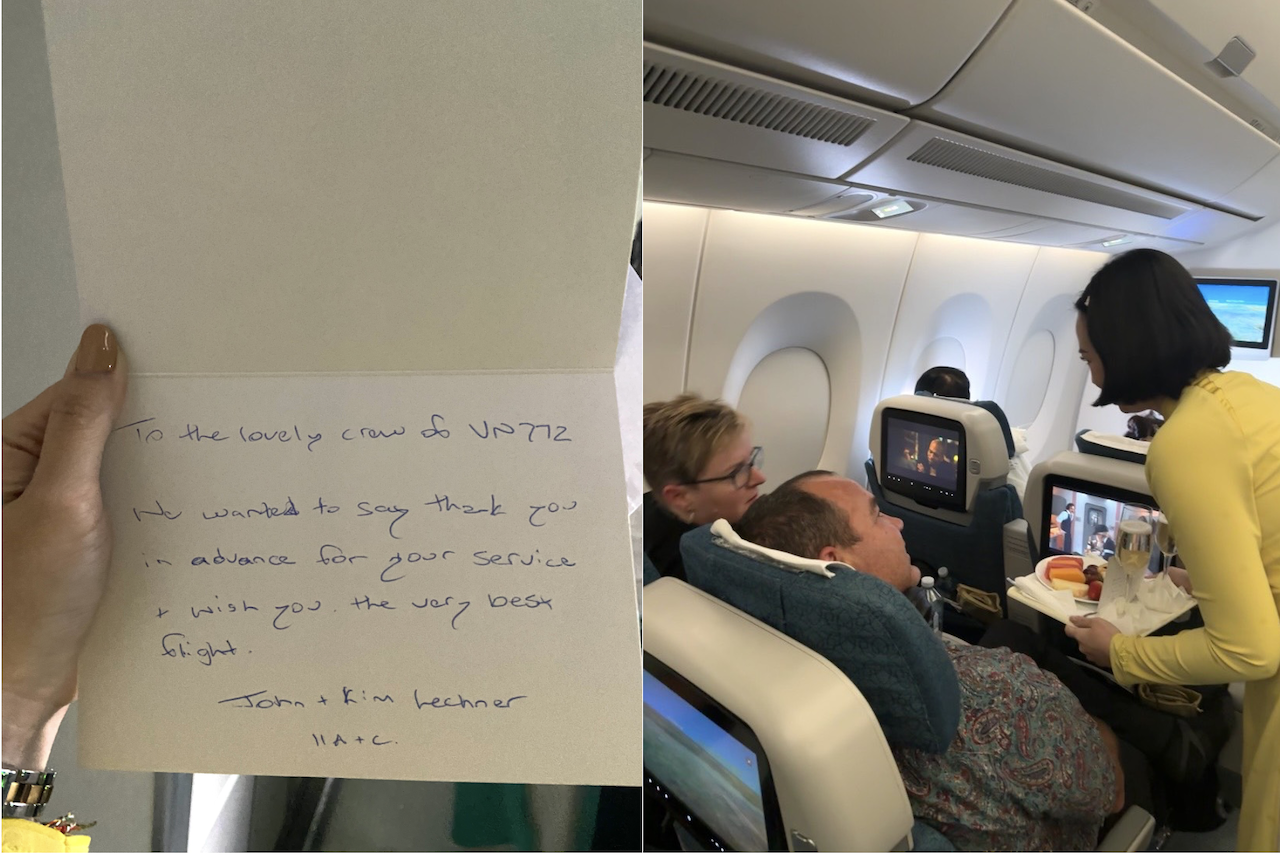 To the lovely crew of VN772
We wanted to say thank you
in advance for your service
+ wish you. the very best
flight.
John + Kim Lechner
11 A + C.